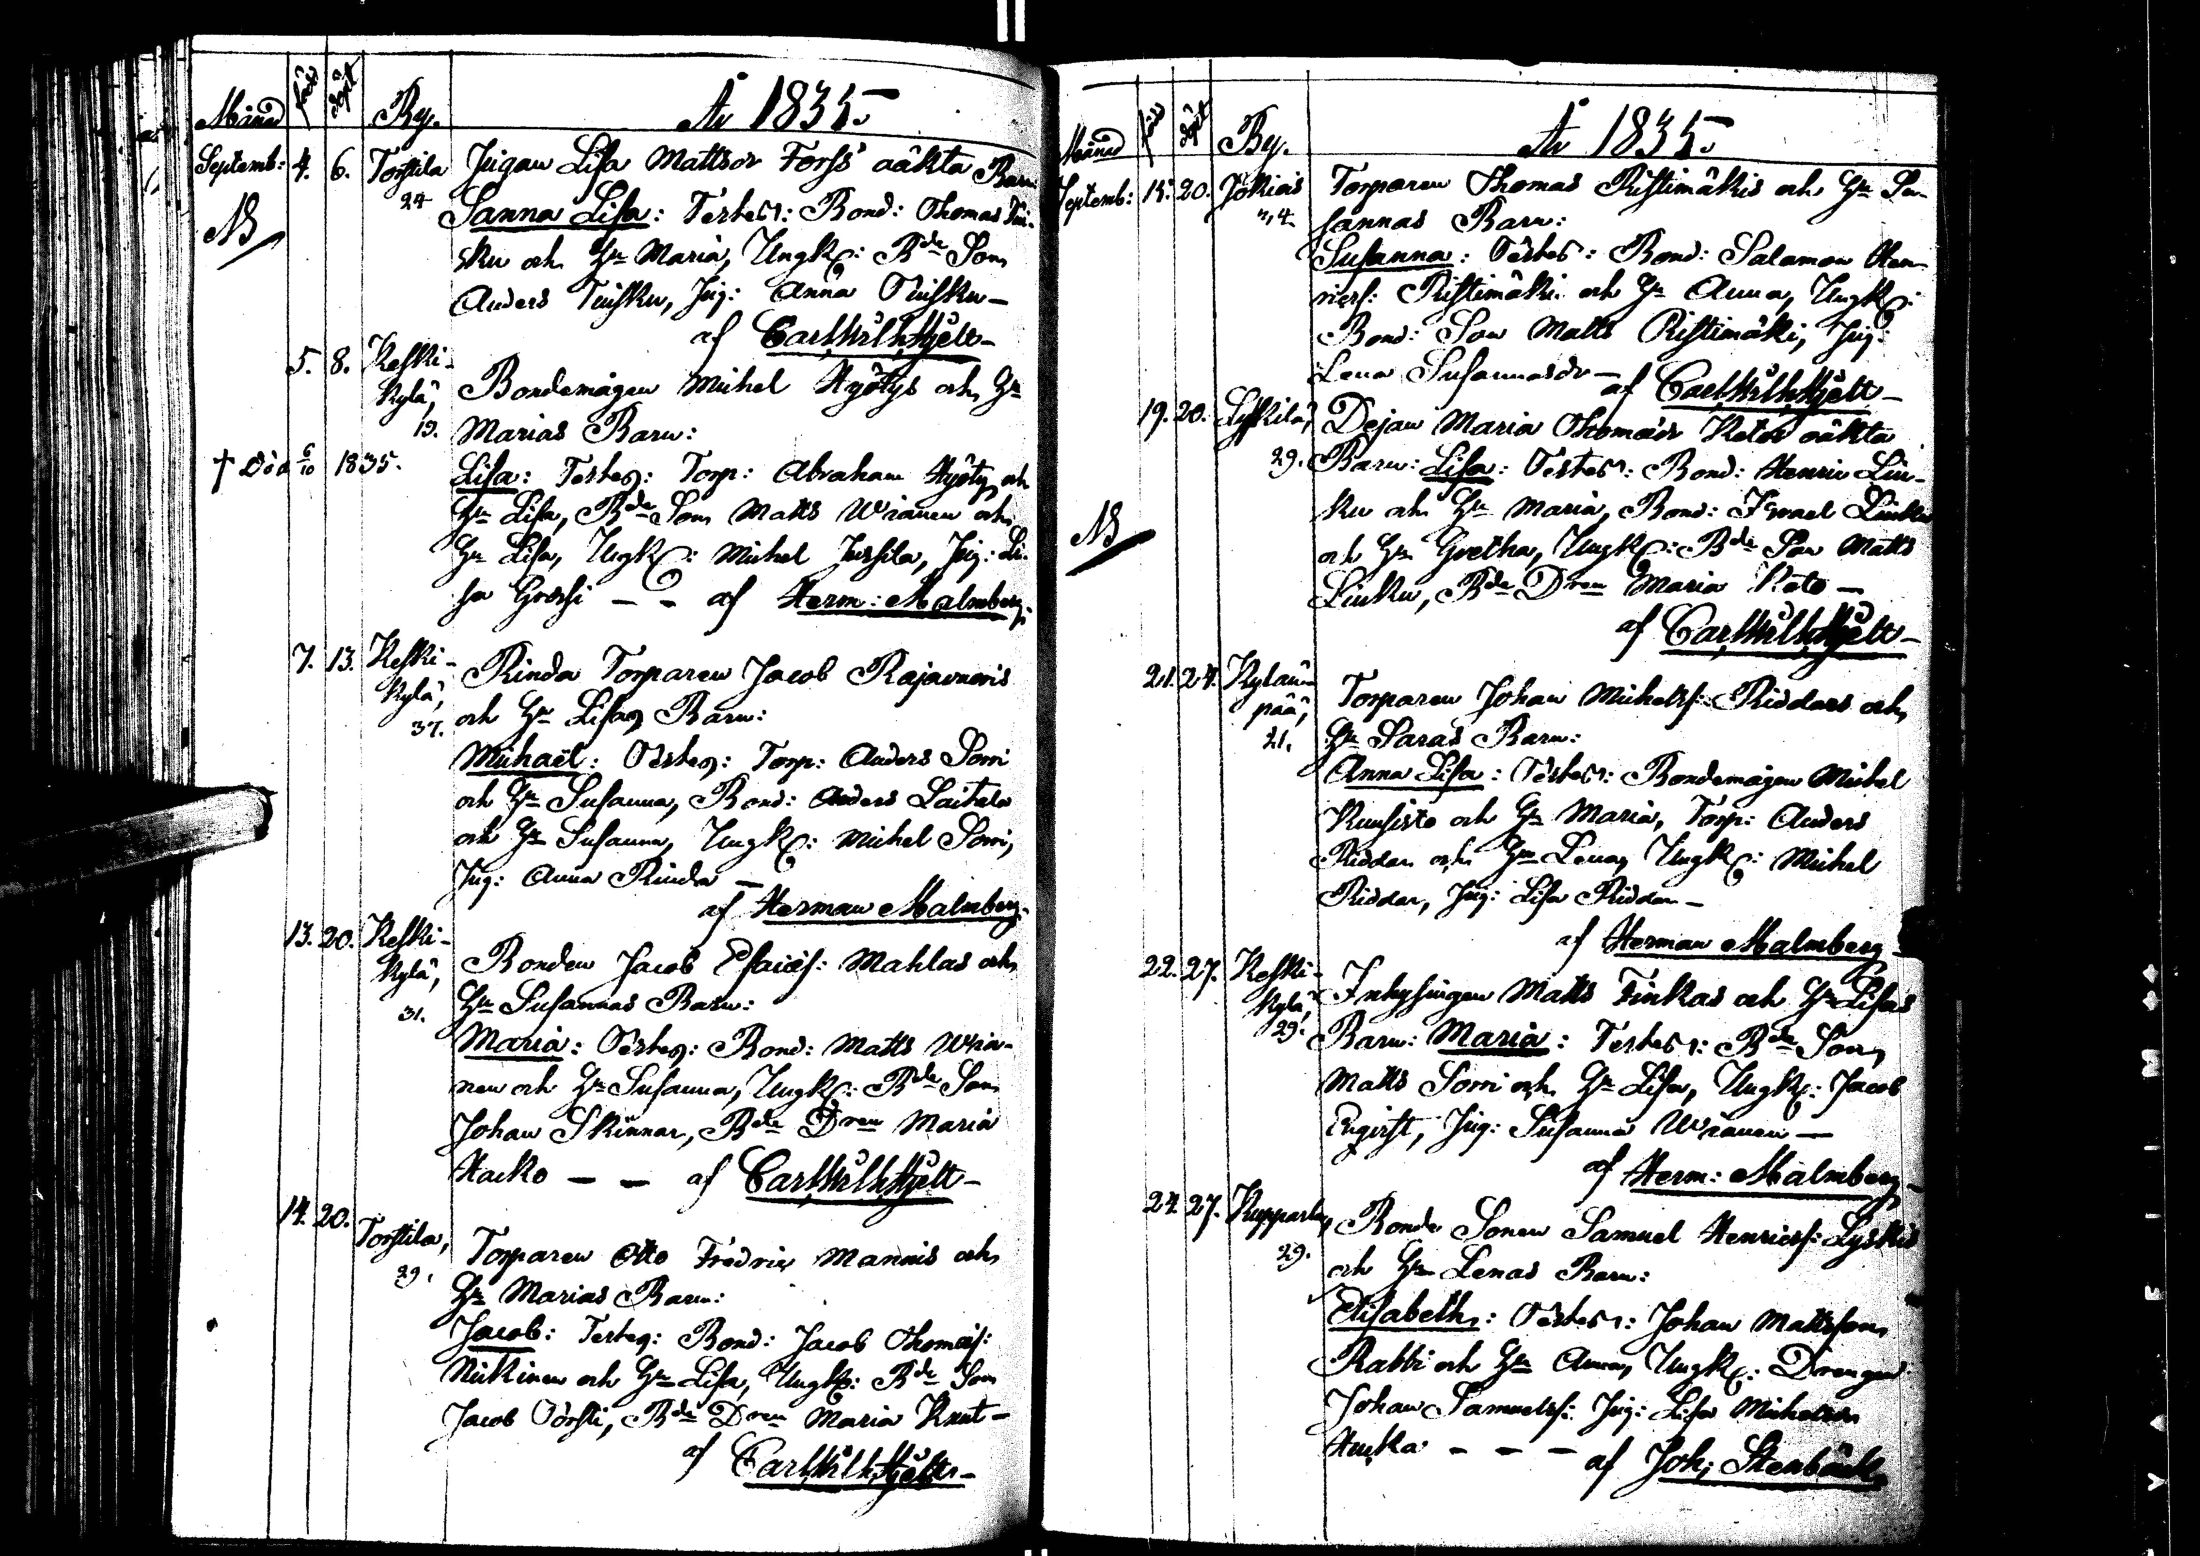 Månad född döpt By. År 1835.
Septemb: 4. 6. Torstila Pigan Lisa Mattsdr Forss' oäkta Barn
24 Sanna Lisa: Testes: Bond: Thomas Tui-
NB sku och Hu Maria, Ungk: Bde Son
Anders Tuisku, Pig: Anna Tuisku —
af Carl Wilh Hjelt —
5. 8. Keski-
Kylä, Bondemågen Michel Hyötys och Hu
19. Marias Barn:
† Död 6/10 1835. Lisa: Testes: Torp: Abraham Hyöty och
Hu Lisa, Bde Son Matts Wiänen och
Hu Lisa, Ungk: Michel Jussila, Pig: Li-
sa — — af Herm: Malmberg.
7. 13. Keski- Rinda Torparen Jacob Rajavuoris
Kylä,
37. och Hu Lisas Barn:
Michaël: Testes: Torp: Anders Sorri
och Hu Susanna, Bond: Anders Laitala
och Hu Susanna, Ungk: Michel Sorri,
Pig: Anna Rinda —
af Herman Malmberg.
13. 20. Keski-
Kylä, Bonden Jacob Esaiæs: Mahlas och
31. Hu Susannas Barn:
Maria: Testes: Bond: Matts Wiä-
nen och Hu Susanna, Ungk: Bde Son
Johan Skinnar, Bde Dren Maria
Hacko — — af Carl Wilh Hjelt —
14. 20. Torstila, Torparen Otto Fredric Mannis och
29. Hu Marias Barn:
Jacob: Testes: Bond: Jacob Thomæs:
Mickinen och Hu Lisa, Ungk: Bde Son
Jacob Törsti, Bde Dren Maria Knut —
af Carl Wilh Hjelt —
Månad född döpt By. År 1835.
Septemb: 15. 20. Jokiois Torparen Thomas Ristimäkis och Hu Su-
sannas Barn:
Susanna: Testes: Bond: Salamon Hen-
ricss: Ristimäki och Hu Anna, Ungk:
Bond: Son Matts Ristimäki, Pig:
Lena Susannasdr — af Carl Wilh Hjelt —
19. 20. Lyskilä, Dejan Maria Thomædr Ketos oäkta
29. Barn: Lisa: Testes: Bond: Henric Lin-
NB ku och Hu Maria, Bond: Israel Linku
och Hu Gretha, Ungk: Bde Son Matts
Linku, Bde Dren Maria Keto —
af Carl Wilh Hjelt —
21. 27. Kylän-
pää, Torparen Johan Michelss: Riddars och
21. Hu Saras Barn:
Anna Lisa: Testes: Bondemågen Michel
Kuusisto och Hu Maria, Torp: Anders
Riddar och Hu Lena, Ungk: Michel
Riddar, Pig: Lisa Riddar —
af Herman Malmberg
22. 27. Keski- Inhysingen Matts Finkas och Hu Lisas
Kylä,
29. Barn: Maria: Testes: Bde Son
Matts Sorri och Hu Lisa, Ungk: Jacob
Pig: Susanna Wiänen —
af Herm: Malmberg —
24. 27. Kupparla, Bonde Sonen Samuel Henricss: Lyskis
29. och Hu Lenas Barn:
Elisabeth: Testes: Johan Mattsson
Rabbi och Hu Anna, Ungk: Drengen
Johan Samuelss: Pig: Lisa Michelsdr
— — — af Joh: Stenbäck